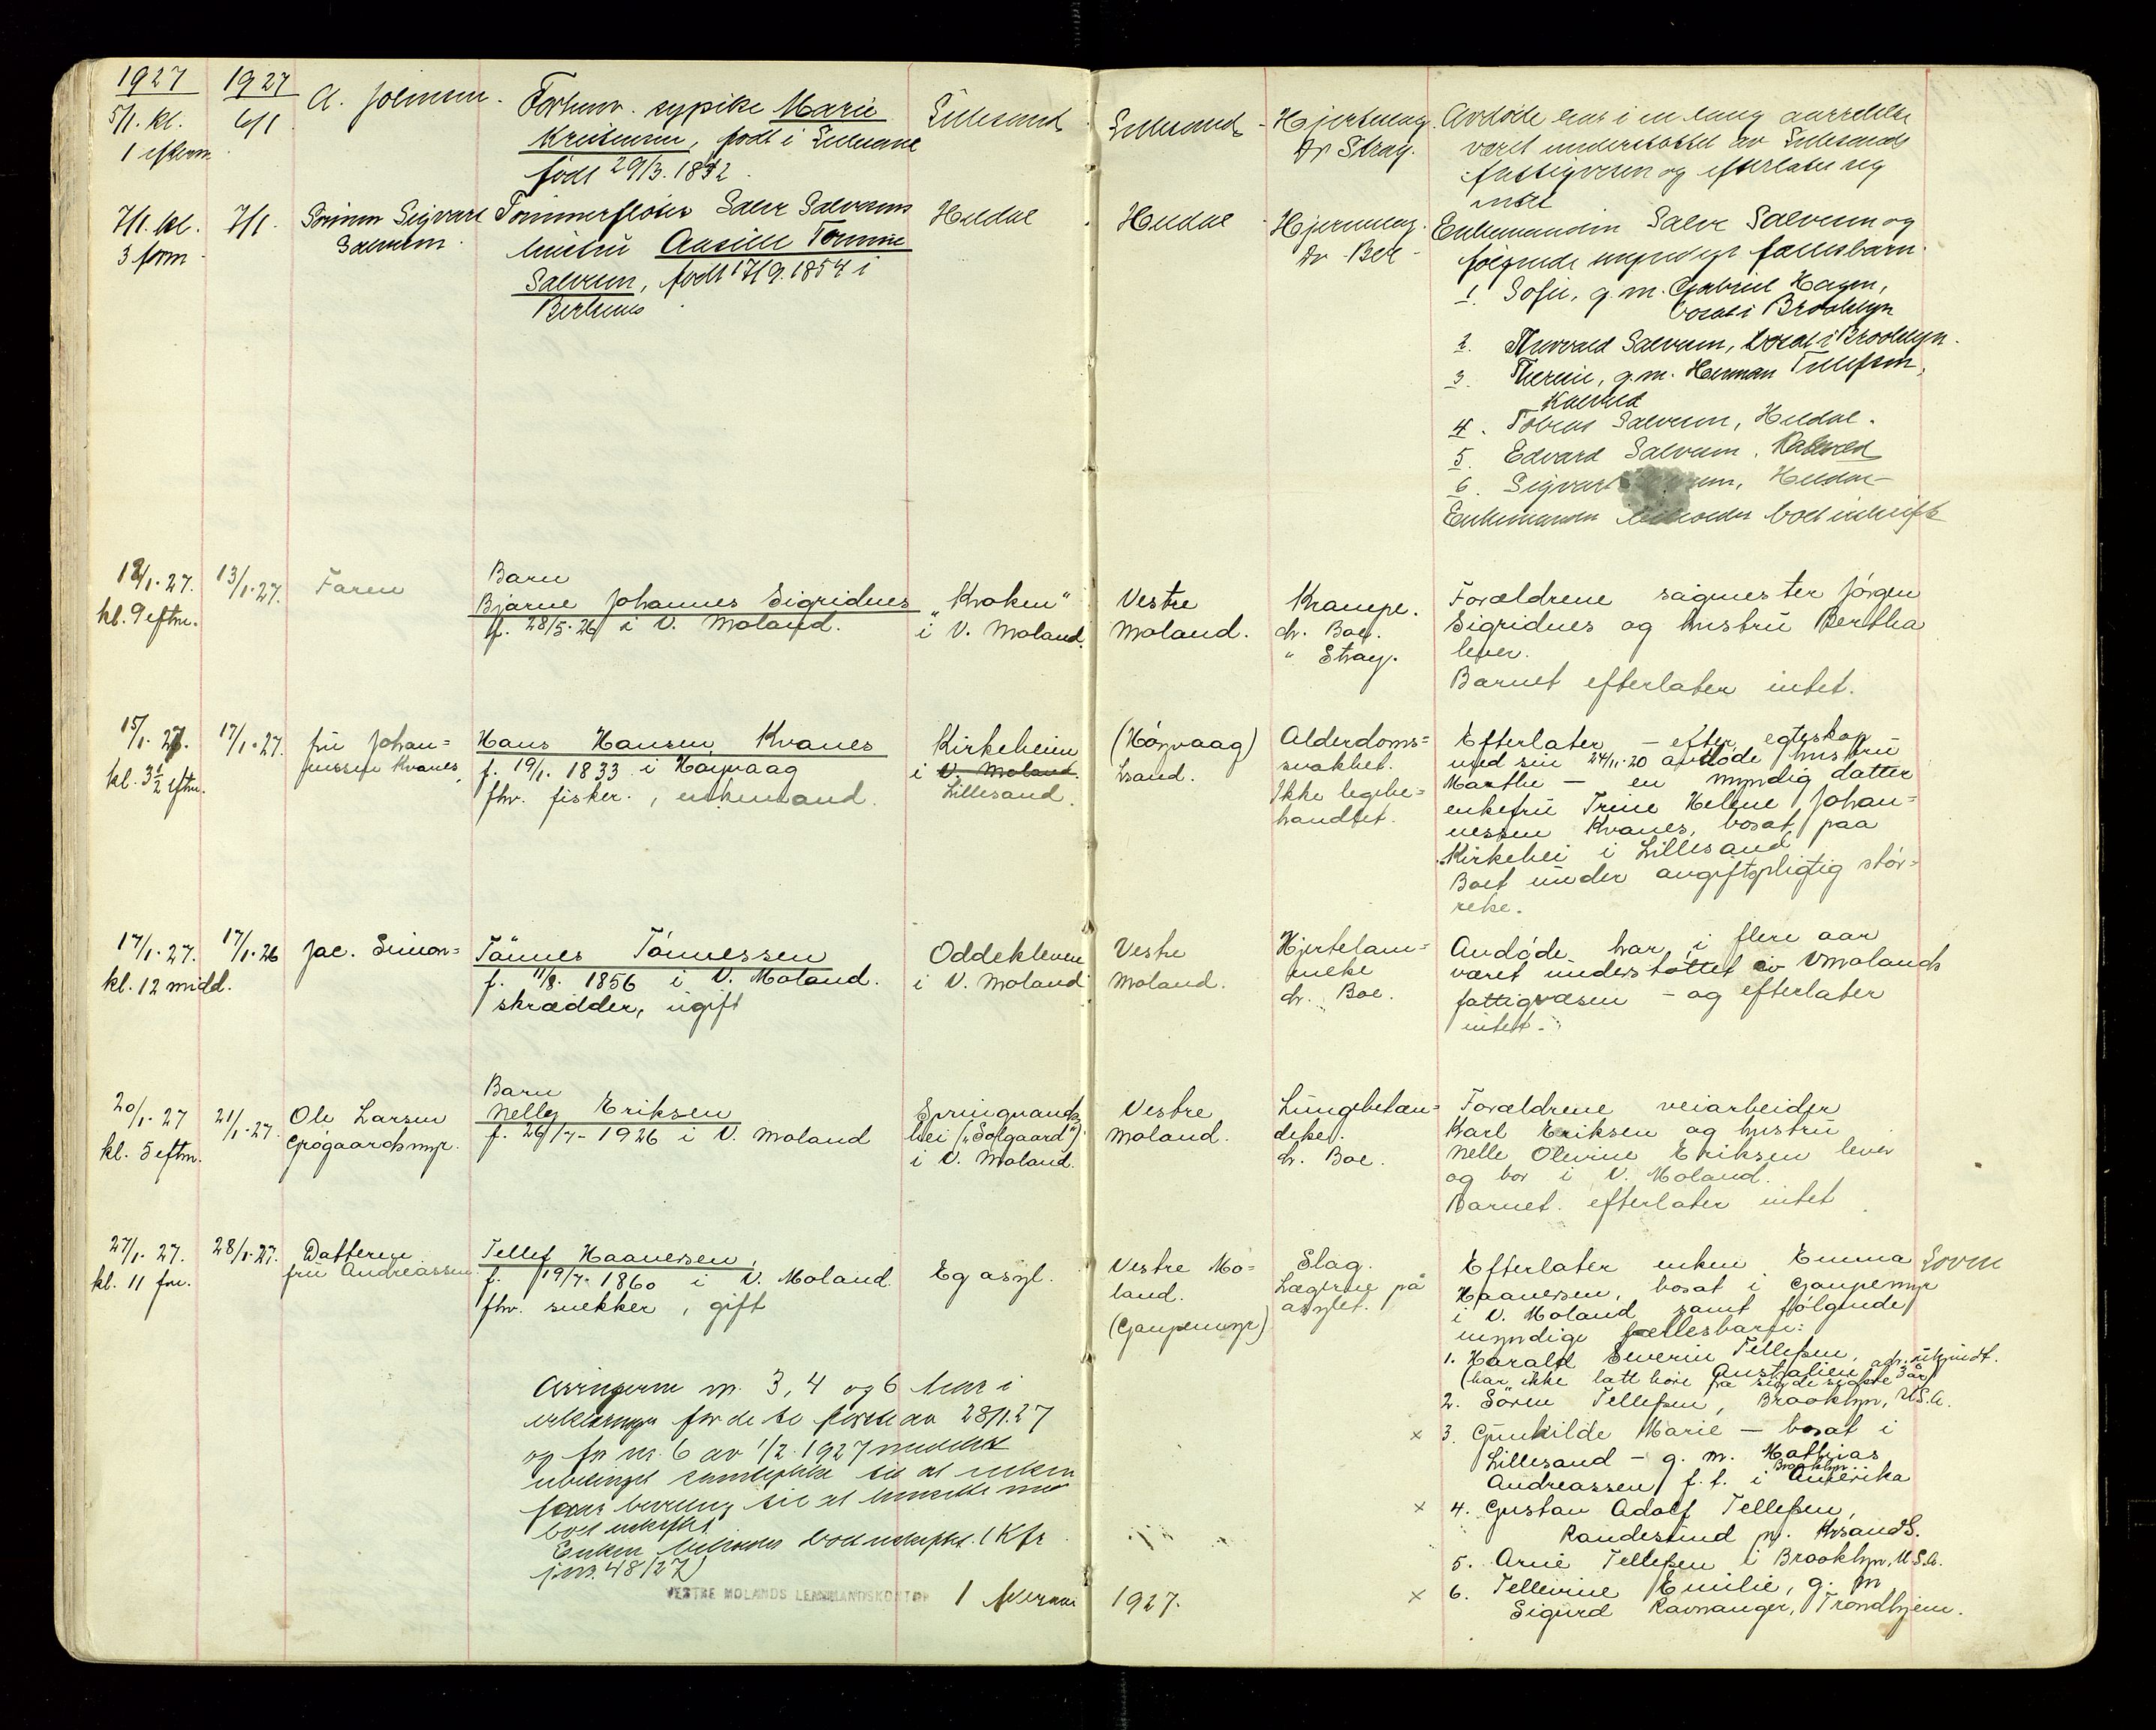 1927 1927
5/1. kl. 6/1 A. Johnsen. Forhenv. sypike Marie Lillesand Lillesand Hjerteslag. Avdøde har i en lang aarrekke
1 efterm. født i Dr Stray. været understøttet av Lillesands
født 29/3. 1842 fattigvesen og efterlater sig
intet
7/1. kl. 7/1. Sønnen Sigvart Tømmerfløter Salve Salvesens Heldal Heldal Hjerneslag. Enkemannen Salve Salvesen og
3 form. Salvesen. hustru Tomine Dr følgende myndige fællesbarn.
Salvesen, født 17/9. 1854 i 1. Sofie, g. m. Gabriel Hagen,
bosat i Brooklyn
2. Thorvald Salvesen, bosat i Brooklyn.
3. Therese, g. m. Herman Tellefsen,
Kalvild
4. Tobias Salvesen, Heldal.
5. Edvard Salvesen, Kalvild
6. Sigvart Heldal
Enkemannen beholder boet uskiftet
12/1. 27. 13/1. 27. Faren Barn
Bjarne Johannes Sigridnes „Kroken" Vestre Krampe. Forældrene sagmester Jørgen
kl. 9 eftm. f. 28/5. 26 i V. Moland. i V. Moland. Moland. dr. Boe. Sigridnes og hustru Bertha
" Stray. lever.
Barnet efterlater intet.
15/1. 27. 17/1. 27. fru Johan= Hans Hansen Kvanes Kirkeheien (Høvaag) Alderdoms= Efterlater – efter egteskap
nessen Kvanes, f. 19/1. 1833 i Høyvaag i V. Moland. Lsand. svakhet. med sin 24/11. 20 avdøde hustru
kl. 3½ eftm. fhv. fisker., enkemand. Lillesand. Ikke legebe= Marthe – en myndig datter
handlet. enkefru Trine Helene Johan=
nessen Kvanes, bosat paa
Kirkehei i Lillesand.
Boet under avgiftspligtig stør=
relse.
17/1. 27. 17/1. 26 Jac. Simon= Tønnes Tønnessen Oddekleven Vestre Hjertelam= Avdøde har i flere aar
kl. 12 midd. f. 11/8. 1856 i V. Moland. i V. Moland Moland. melse været understøttet av V Molands
skrædder, ugift dr. Boe. fattigvæsen – og efterlater
intet.
20/1. 27 21/1. 27. Ole Larsen Barn
Nelly Eriksen Springvands= Vestre Lungebetæn= Forældrene veiarbeider
kl. 5 eftm. Grøgaardsmyr. f. 26/7 – 1926 i V. Moland hei („Solgaard") Moland. delse. Karl Eriksen og hustru
i V. Moland. dr. Boe. Nelle Olevine Eriksen lever
og bor i V. Moland.
Barnet efterlater intet
27/1. 27. 28/1. 27. Datteren Tellef Haaversen, Eg asyl. Vestre Mo= Slag. Efterlater enken Emma
kl. 11 fm. fru Andreassen. f. 19/7. 1860 i V. Moland. land. Lægerne på Haaversen, bosat i Gaupemyr
fhv. snekker, gift (Gaupemyr) asylet. i V. Moland samt følgende
myndige fællesbarn:
1. Harald Severin Tellefsen, adr. ukjendt.
(har ikke latt høre fra sig de sidste 3 år) Australien
2. Søren Tellefsen, Brooklyn, U.S.A.
Arvingerne nr. 3, 4 og 6 har i x 3. Gunhilde Marie – bosat i
erklæringer for de to første av 28/1. 27 Lillesand – g. m. Mathias
og for nr. 6 av 1/2. 1927 meddelt Andreassen f. t. i Brooklyn Amerika
ubetinget samtykke til at enken x 4. Gustav Adolf Tellefsen,
faar bevilling til at hensitte med Randesund pr. Krsand S.
boet uskiftet. 5. Arne Tellefsen i Brooklyn, U.S.A.
Enken beholder boet uskiftet. (Kfr x 6. Tellevine Emilie, g. m.
jnr. 48/27) Sigurd Ravnanger, Trondhjem.
VESTRE MOLANDS LENSMANDSKONTOR 1 februar 1927.